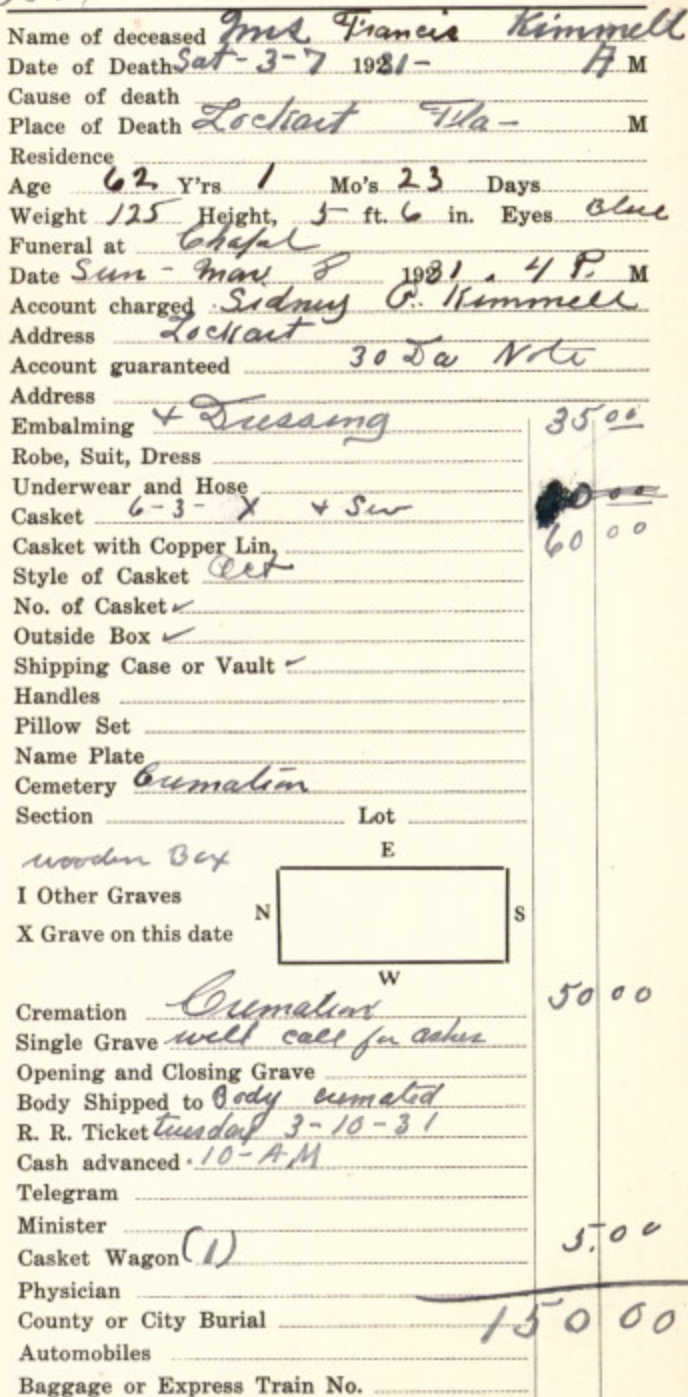 Name of deceased Mrs Francis Kimmell
Date of Death Sat - 3-7 1931- A M
Cause of death
Place of Death Lockart Fla- M
Residence
Age 62 Y'rs 1 Mo's 23 Days
Weight 125 Height, 5 ft. 6 in. Eyes Blue
Funeral at Chapal
Date Sun - Mar 8 1931. 4 P. M
Account charged Sidney P. Kimmell
Address Lockart
Account guaranteed 30 Da Note
Address
Embalming + Dressing 35 00
Robe, Suit, Dress
Underwear and Hose
Casket 6-3- X + Ser 60 00
Casket with Copper Lin,
Style of Casket Oct
No. of Casket ✓
Outside Box ✓
Shipping Case or Vault ✓
Handles
Pillow Set
Name Plate
Cemetery Cremation
Section Lot
wooden Box E
I Other Graves
N S
X Grave on this date
W
Cremation Cremation 50 00
Single Grave will call for ashes
Opening and Closing Grave
Body Shipped to Body cremated
R. R. Ticket tuesday 3-10-31
Cash advanced 10-AM
Telegram
Minister
Casket Wagon (1) 5.00
Physician
County or City Burial 150 00
Automobiles
Baggage or Express Train No.